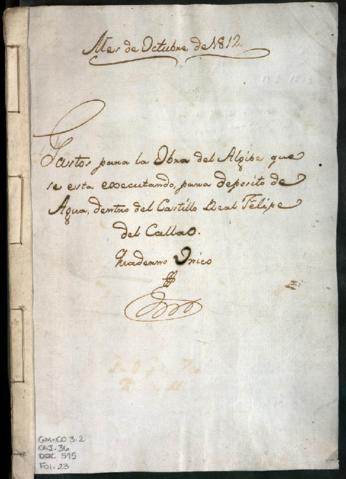 Mes de Octubre de 1812
Gastos para la Obra del Algibe que
se esta executando, para deposito de
Agua, dentro del Castillo Real Felipe
del Callao.
Quaderno Unico
GM-CO 3.2
CAJ. 36
DOC 595
FOL. 23